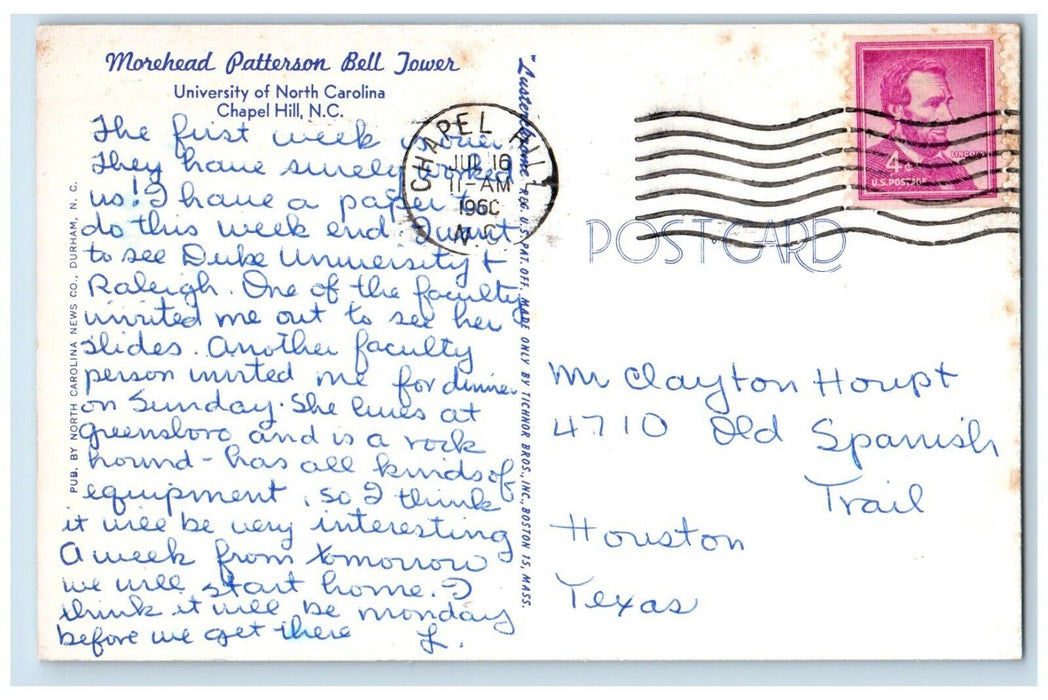 Morehead Patterson Bell Tower
University of North Carolina
Chapel Hill, N.C.
The first week is over.
They have surely worked
us! I have a paper to
do this week end. I want
to see Duke University +
Raleigh. One of the faculty
invited me out to see her
slides. Another faculty
person invited me for dinner
on Sunday. She lives at
Greensboro and is a rock
hound - has all kinds of
equipment, so I think
it will be very interesting
A week from tomorrow
we will start home. I
think it will be monday
before we get there L.
PUB. BY NORTH CAROLINA NEWS CO., DURHAM, N. C.
"Lusterchrome" REG. U.S. PAT. OFF. MADE ONLY BY TICHNOR BROS., INC., BOSTON 15, MASS.
CHAPEL HILL
JUL 16
11-AM
1960
N.C.
LINCOLN
4¢
U.S. POSTAGE
POST CARD
Mr Clayton Houpt
4710 Old Spanish
Trail
Houston
Texas